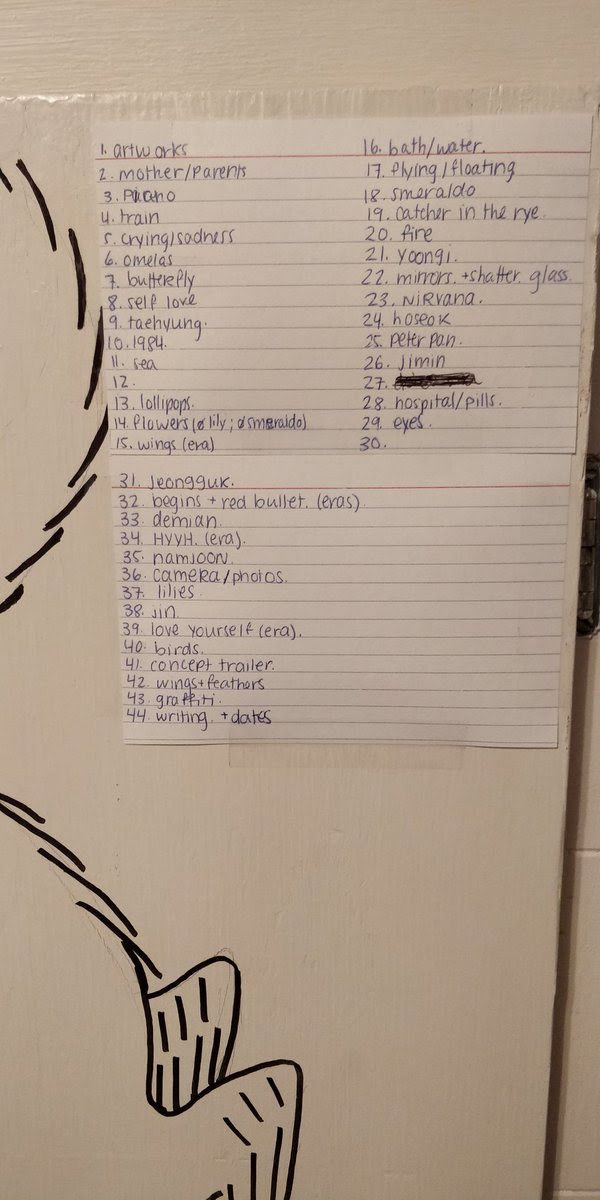 1. artworks
2. mother/parents
3. Piano
4. train
5. crying/sadness
6. omelas
7. butterfly
8. self love
9. taehyung.
10. 1984.
11. sea
12.
13. lollipops.
14. flowers (ø lily ; ø smeraldo)
15. wings (era)
16. bath/water.
17. flying/floating
18. smeraldo
19. catcher in the rye.
20. fire
21. yoongi.
22. mirrors. + shatter. glass.
23. NiRvana.
24. hoseok
25. peter pan.
26. jimin
27.
28. hospital/pills.
29. eyes.
30.
31. jeongguk.
32. begins + red bullet. (eras)
33. demian.
34. HYYH. (era).
35. namjoon.
36. camera/photos.
37. lilies
38. jin.
39. love yourself (era).
40. birds.
41. concept trailer.
42. wings+feathers
43. graffiti.
44. writing. + dates